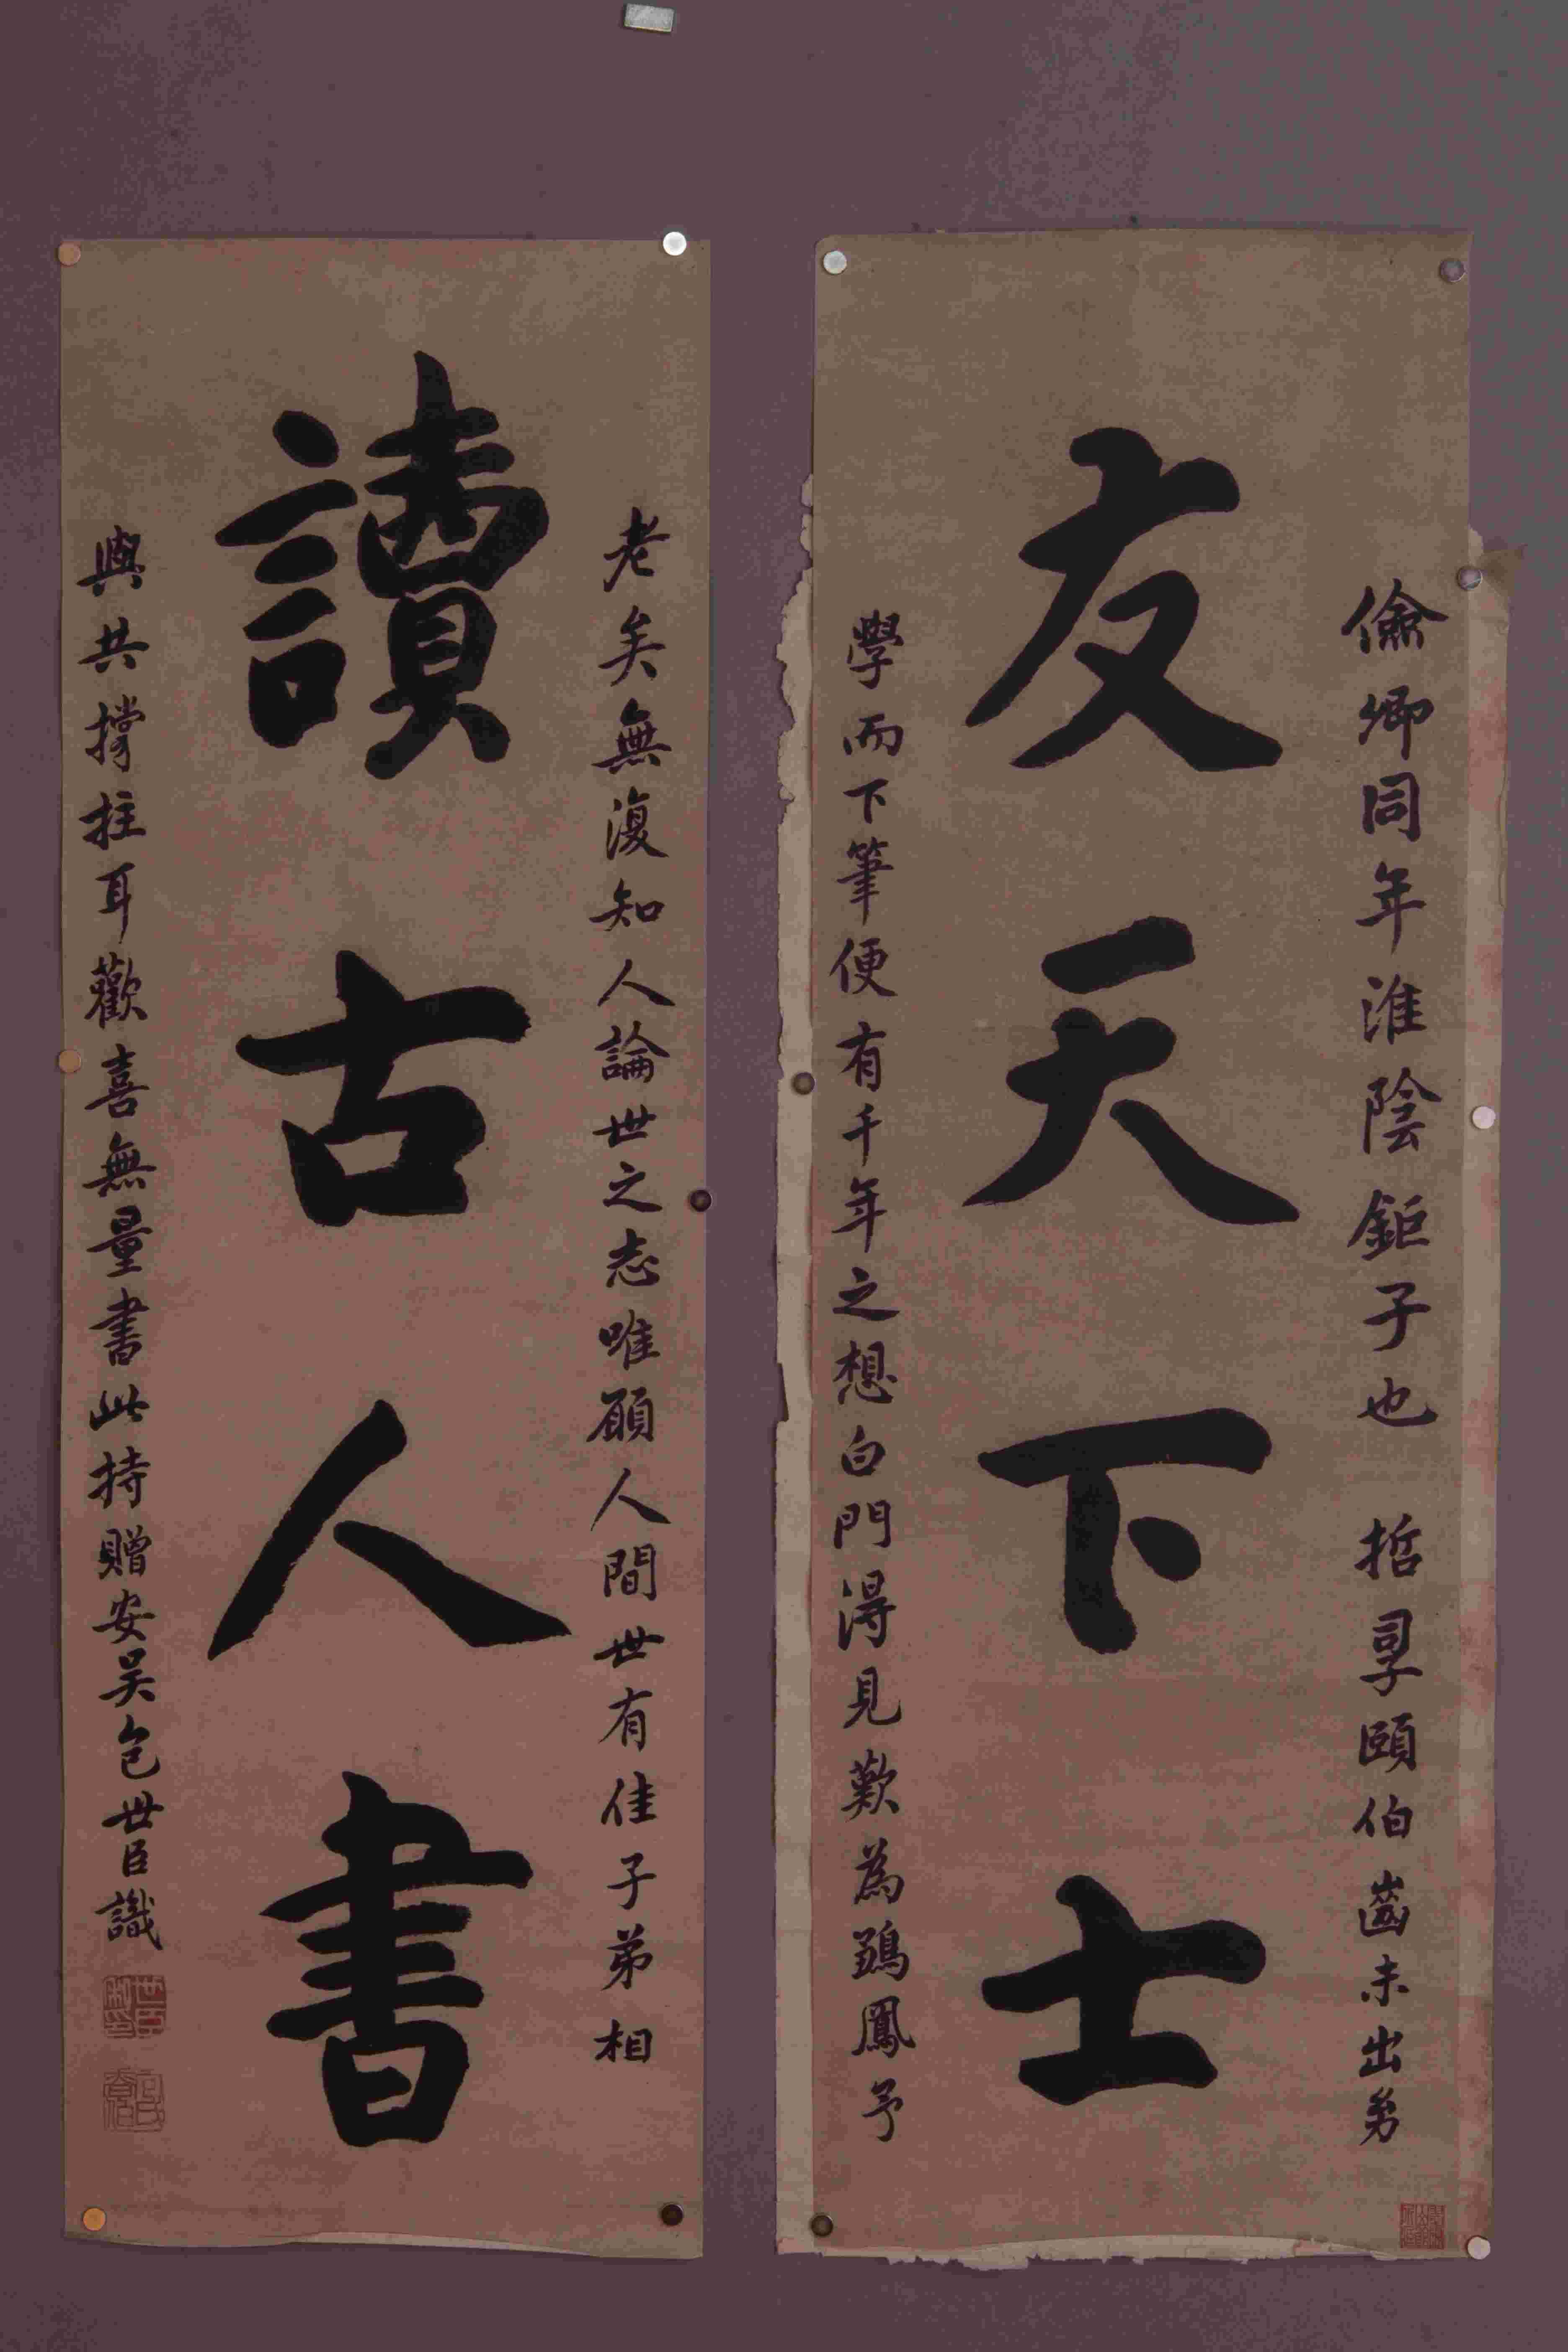 儉卿同年淮陰鉅子也 哲嗣頤伯齒未出幼
友天下士
學而下筆便有千年之想白門得見歎為鵷鳳予
老矣無復知人論世之志唯願人間世有佳子弟相
讀古人書
與共撐拄耳歡喜無量書此持贈安吳包世臣識